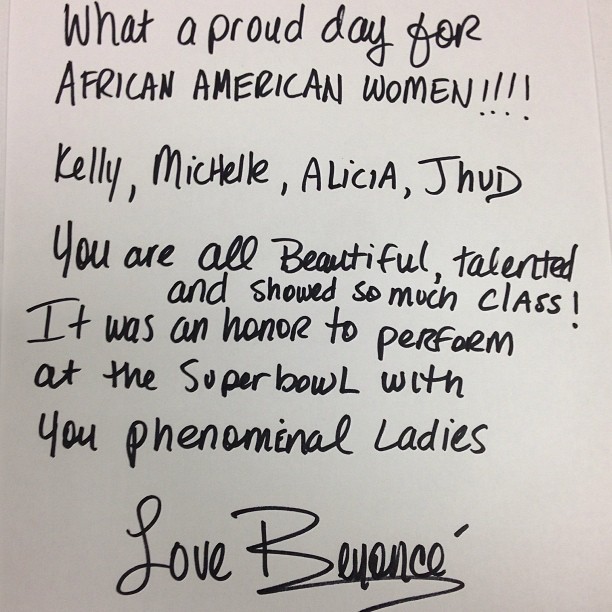 What a proud day for
AFRICAN AMERICAN WOMEN!!!!
Kelly, Michelle, ALiCiA, JhUD
You are all Beautiful, talented
and showed so much class!
It was an honor to perform
at the Superbowl with
you phenominal Ladies
Love Beyoncé